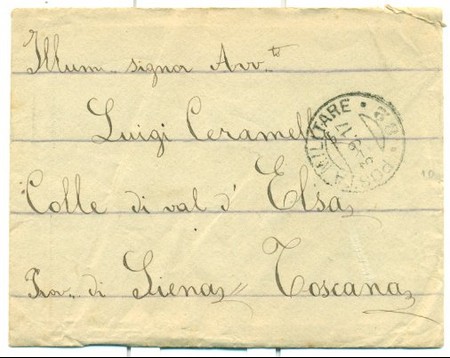 Illum. signor Avv.to
Luigi Ceramelli
Colle di val d' Elsa
Prov. di Siena // Toscana
POSTA MILITARE • 38 •